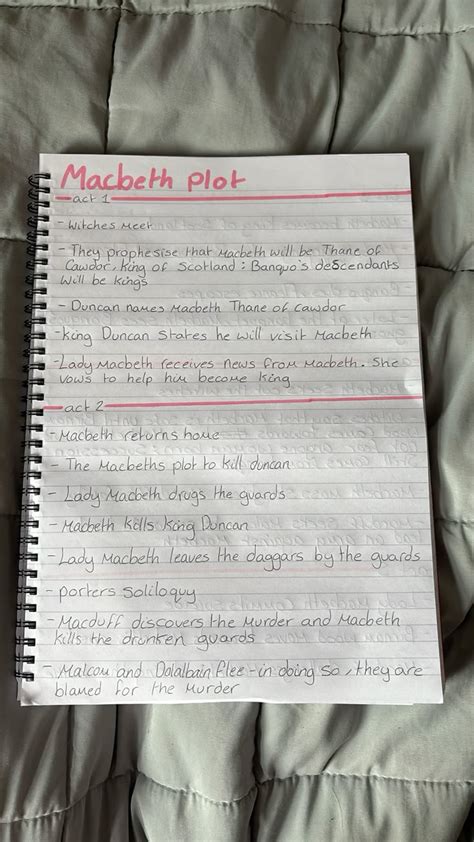 Macbeth plot
act 1
- Witches Meet
- They prophesise that Macbeth will be Thane of
Cawdor, King of Scotland ; Banquo's descendants
will be kings
- Duncan names Macbeth Thane of Cawdor
- King Duncan states he will visit Macbeth
- Lady Macbeth receives news from Macbeth. She
vows to help him become King
act 2
- Macbeth returns home
- The Macbeths plot to kill duncan
- Lady Macbeth drugs the guards
- Macbeth kills King Duncan
- Lady Macbeth leaves the daggars by the guards
- porters Soliloquy
- Macduff discovers the Murder and Macbeth
kills the drunken guards
- Malcom and Dolalbain flee - in doing so, they are
blamed for the Murder